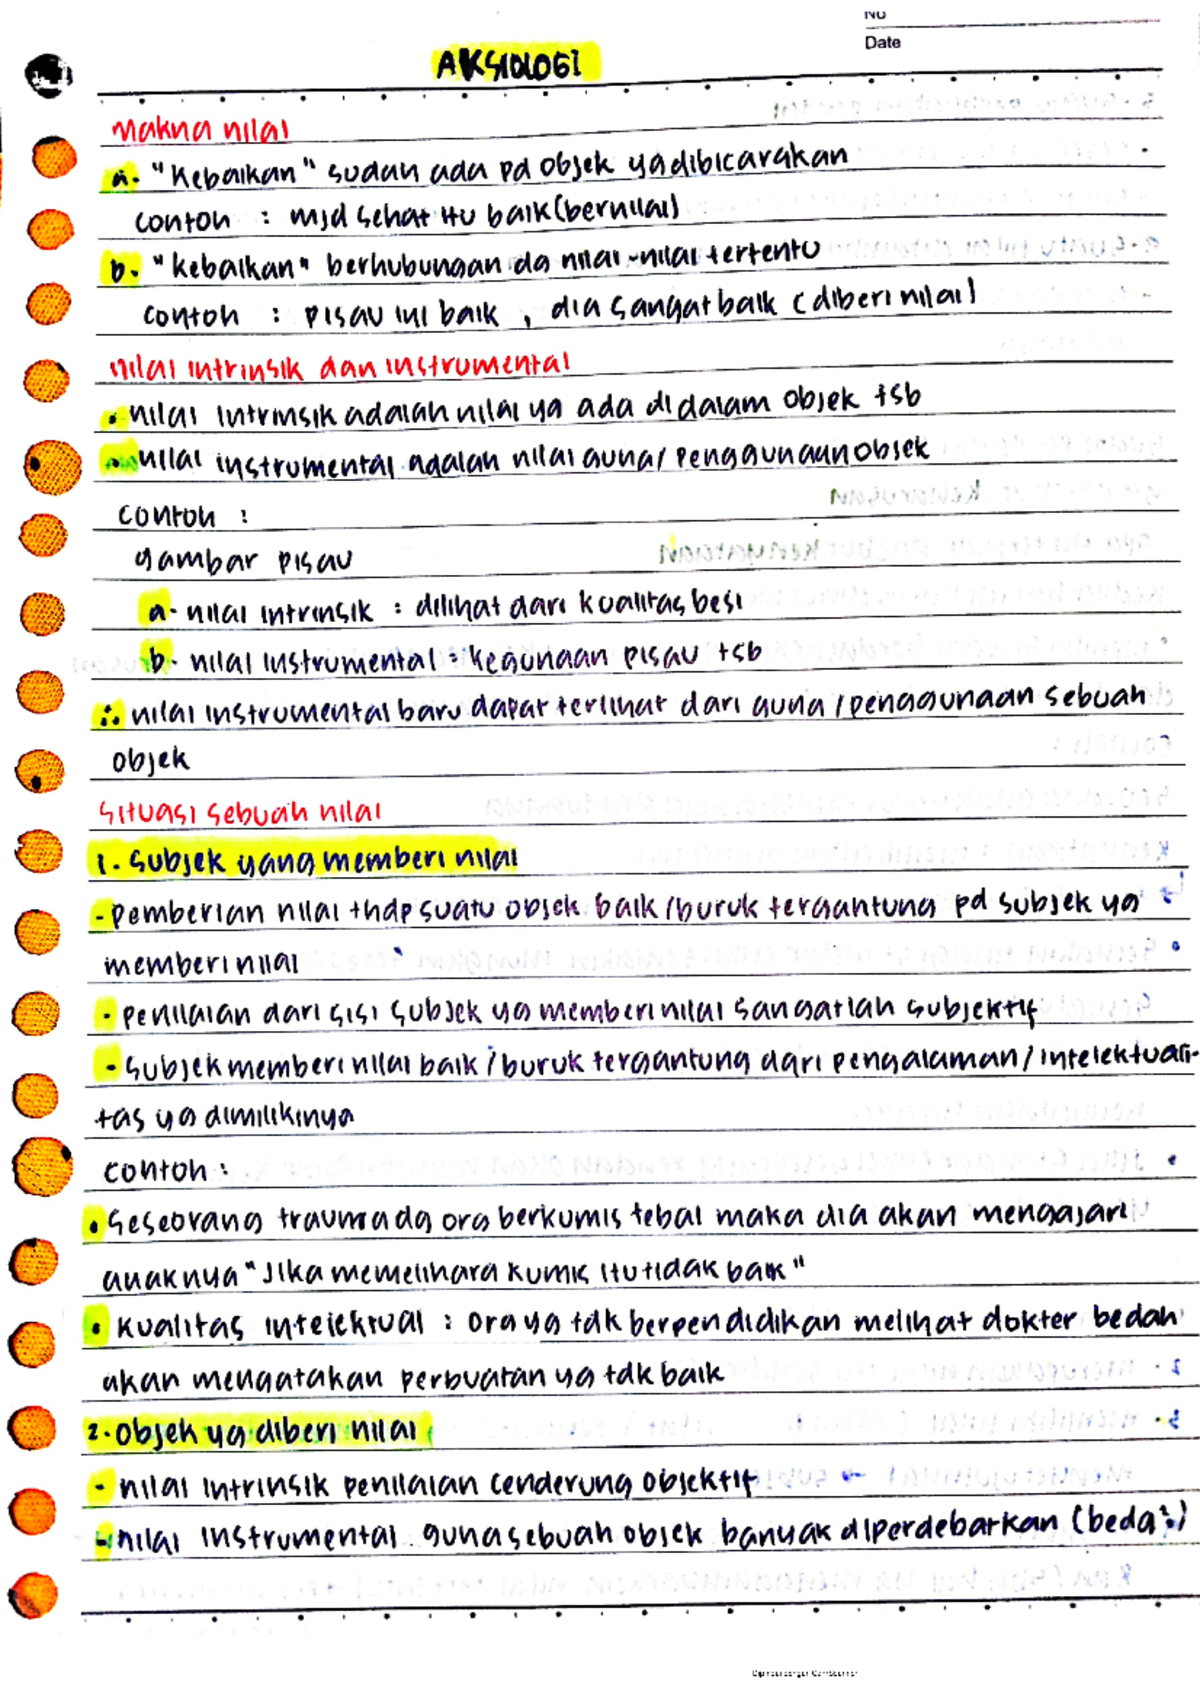 NO
Date
AKSIOLOGI
Makna nilai
a. "Kebaikan" sudah ada pd objek yg dibicarakan
contoh : mjd sehat itu baik (bernilai)
b. "kebaikan" berhubungan dg nilai-nilai tertentu
contoh : pisau ini baik , dia sangat baik (diberi nilai)
nilai intrinsik dan instrumental
• nilai intrinsik adalah nilai yg ada didalam objek tsb
• nilai instrumental adalah nilai guna/penggunaan objek
contoh :
gambar pisau
a. nilai intrinsik : dilihat dari kualitas besi
b. nilai instrumental : kegunaan pisau tsb
∴ nilai instrumental baru dapat terlihat dari guna/penggunaan sebuah
objek
situasi sebuah nilai
1. Subjek yang memberi nilai
- pemberian nilai thdp suatu objek baik/buruk tergantung pd subjek yg
memberi nilai
- penilaian dari sisi subjek yg memberi nilai sangatlah subjektif
- subjek memberi nilai baik/buruk tergantung dari pengalaman/intelektuali-
tas yg dimilikinya
contoh :
• seseorang trauma dg org berkumis tebal maka dia akan mengajari
anaknya "Jika memelihara kumis itu tidak baik"
• kualitas intelektual : org yg tdk berpendidikan melihat dokter bedah
akan mengatakan perbuatan yg tdk baik
2. Objek yg diberi nilai
- nilai intrinsik penilaian cenderung objektif
- nilai instrumental guna sebuah objek banyak diperdebatkan (beda²)